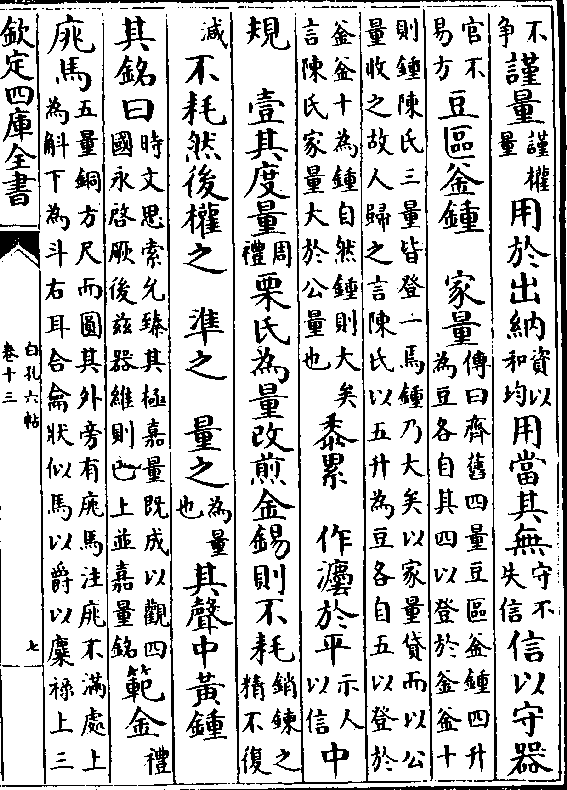 不争謹量謹權量用於出納資以和均用當其無守不失信信以守器
官不易方豆區釜鍾　家量傳曰齊舊四量豆區釜鍾四升為豆各自其四以登於釜釜十
則鍾陳氏三量皆登一焉鍾乃大矣以家量貸而以公量收之故人歸之言陳氏以五升為豆各自五以登於
釜釜十為鍾自然鍾則大矣言陳氏家量大於公量也黍累　作瀍於平示人以信中
規　壹其度量周禮栗氏為量改煎金錫則不耗銷鍊之精不復
減不耗然後權之　準之　量之為量也其聲中黃鍾
其銘曰時文思索允臻其極嘉量既成以觀四國永啓厥後兹器維則已上並嘉量銘範金禮
庣馬五量銅方尺而圜其外旁有庣馬注庣不滿處上為斛下為斗右耳合龠狀似馬以爵以麋祿上三
欽定四庫全書
白孔六帖
卷十三
七